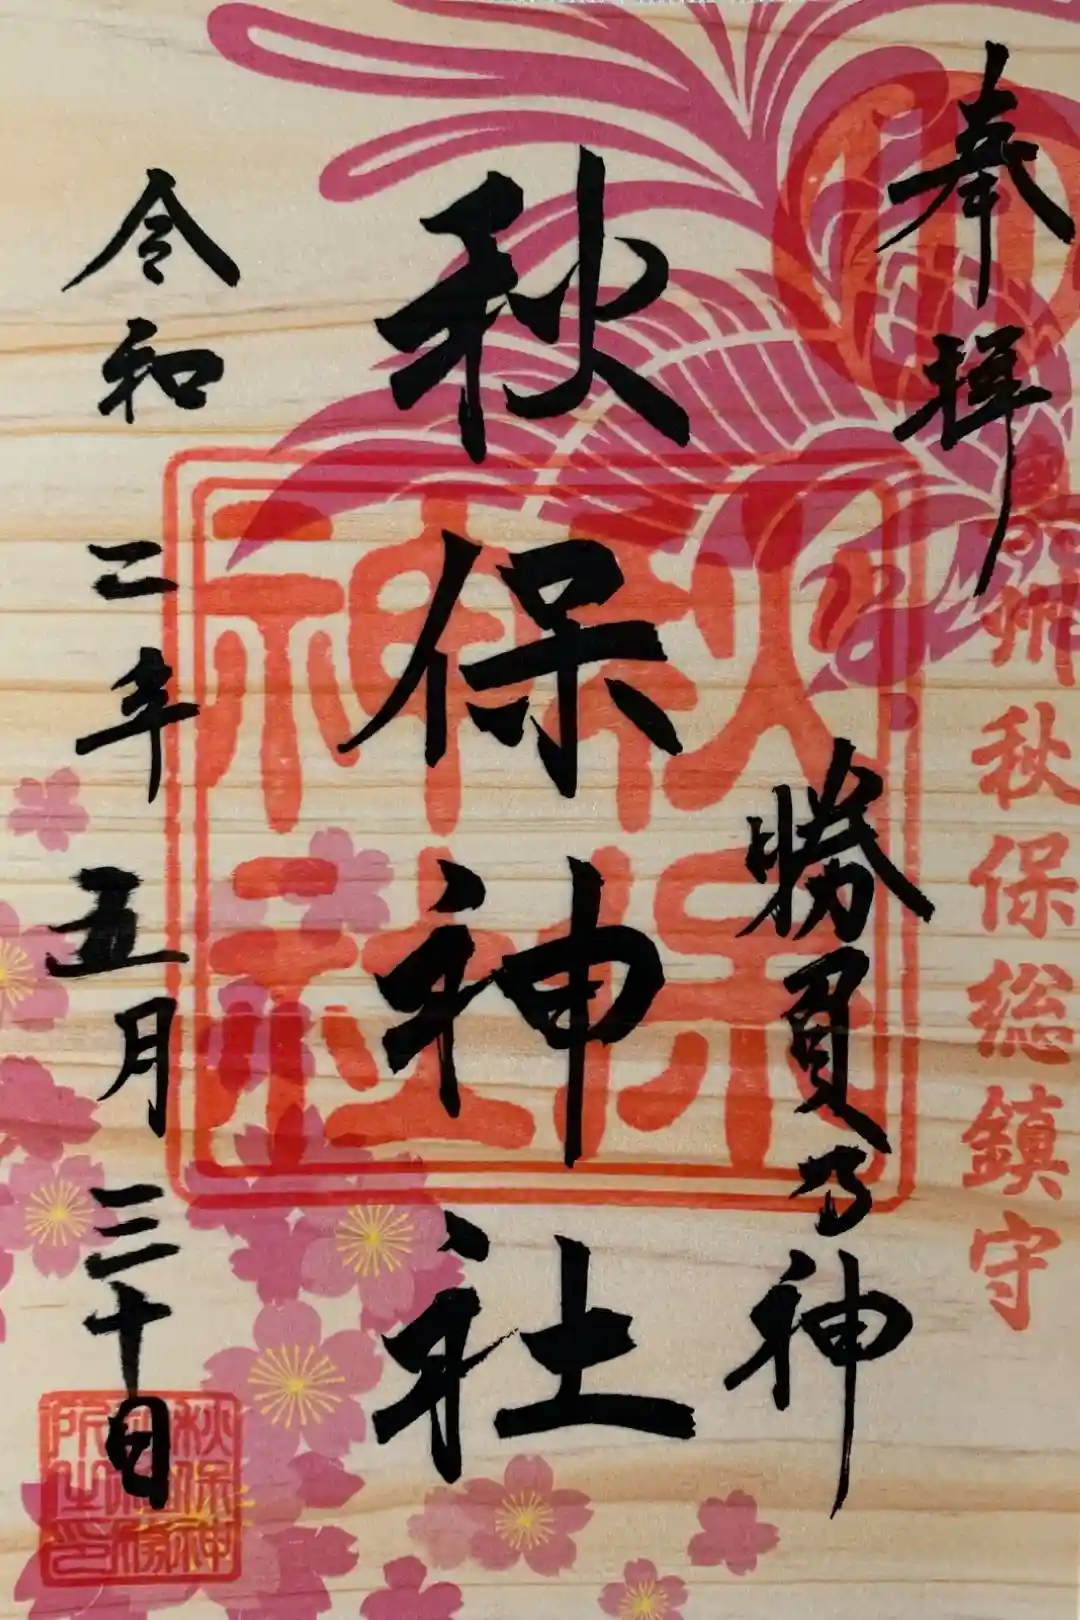 奉拝
奥州秋保総鎮守
勝負乃神
秋保神社
秋保神社
令和二年五月三十日